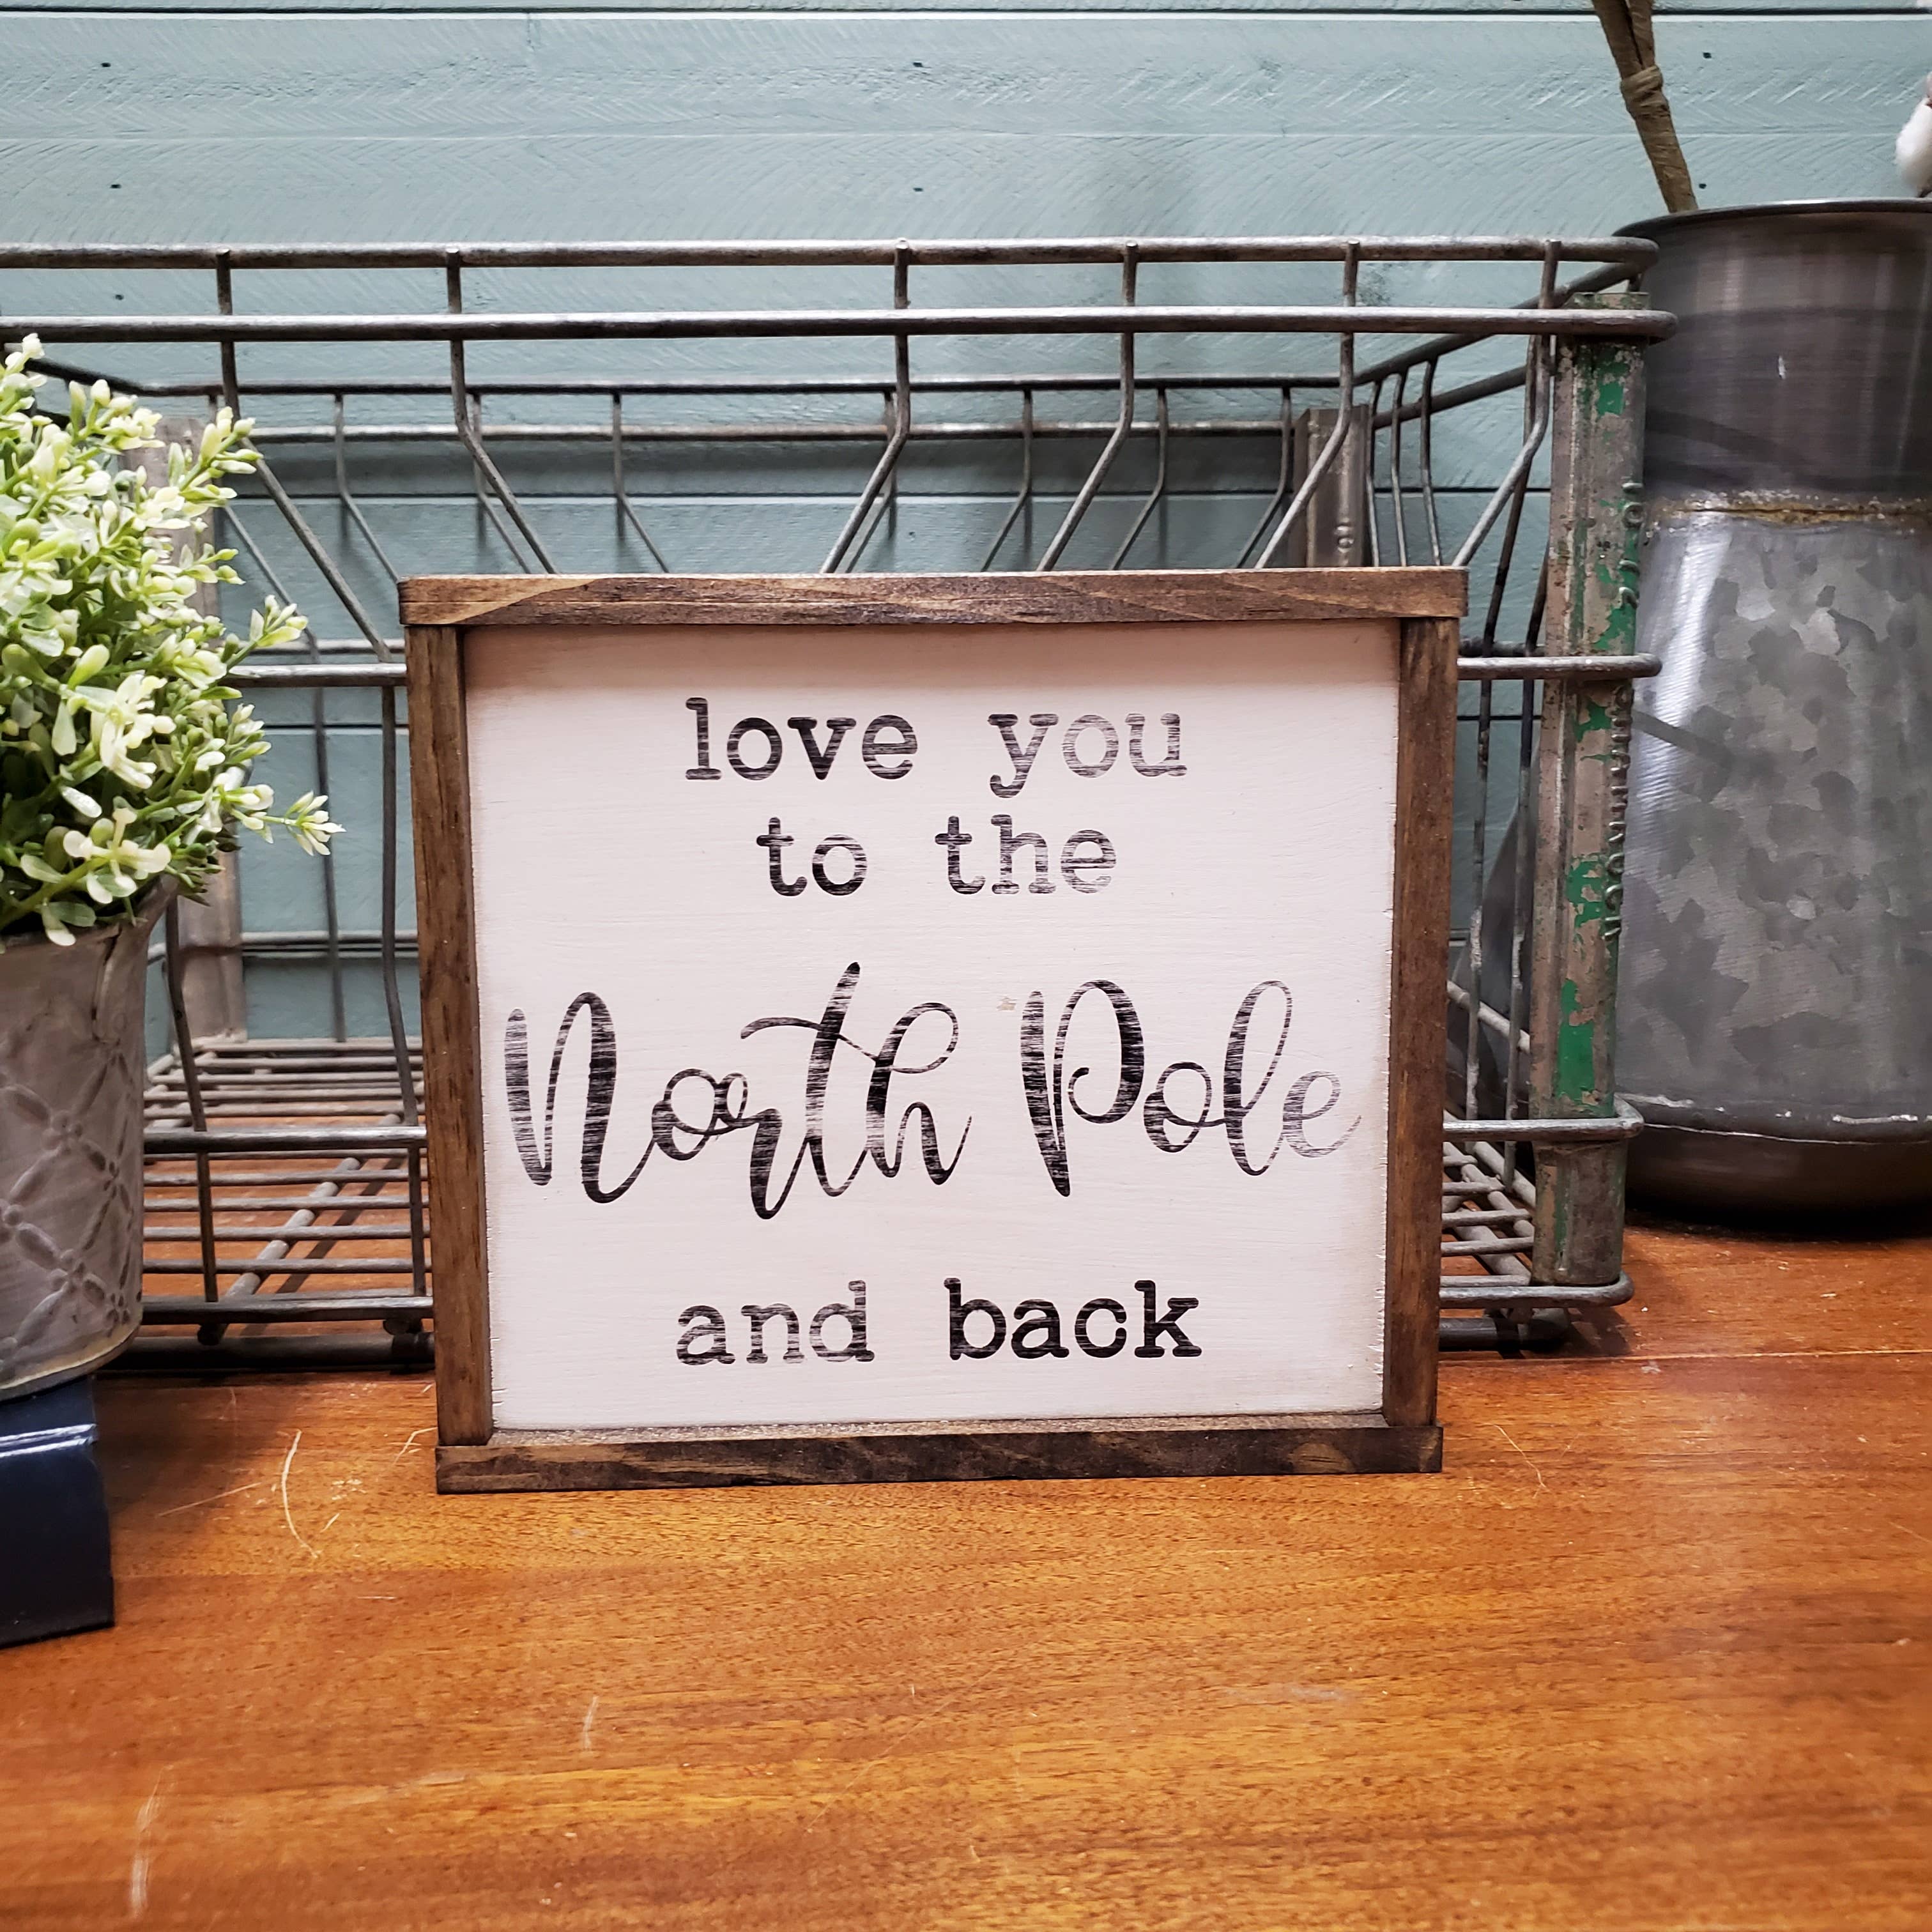 love you
to the
North Pole
and back